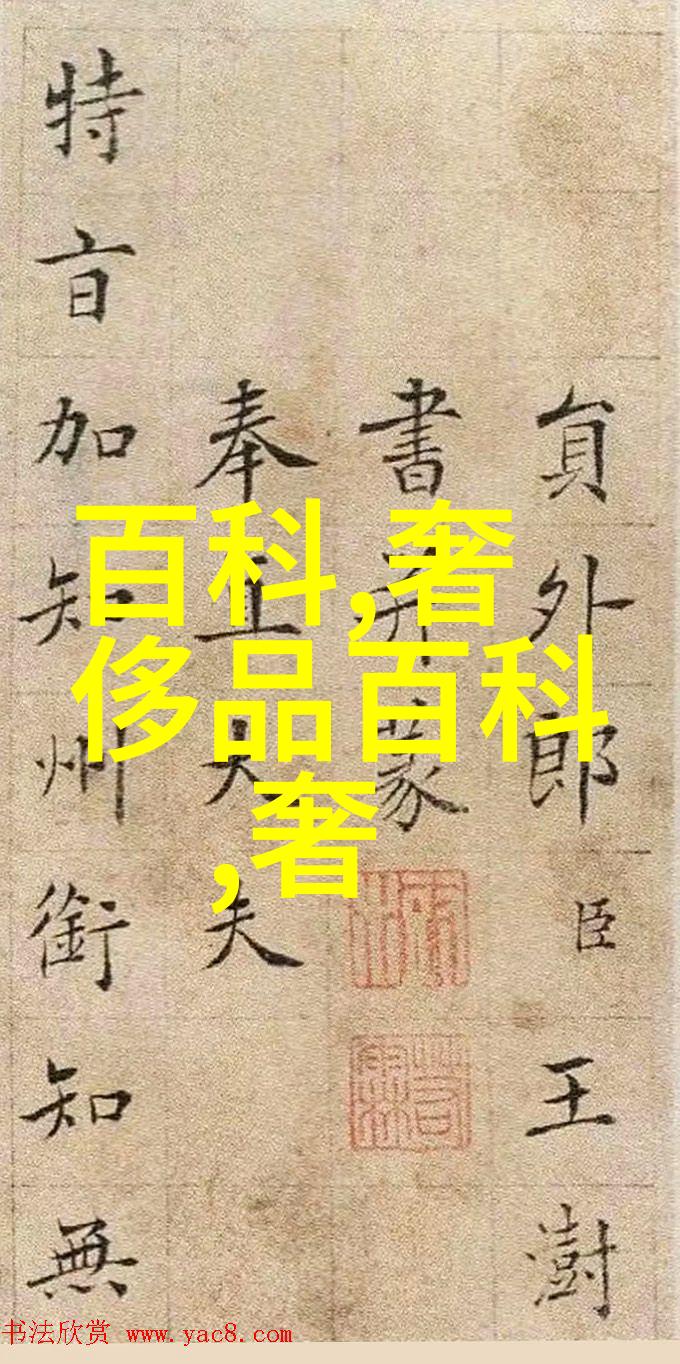 貟外郎臣王澍
書并篆
奉直大夫
特旨加知州銜知無
百科,奢
侈品百科
,奢
书法欣赏 www.yac8.com